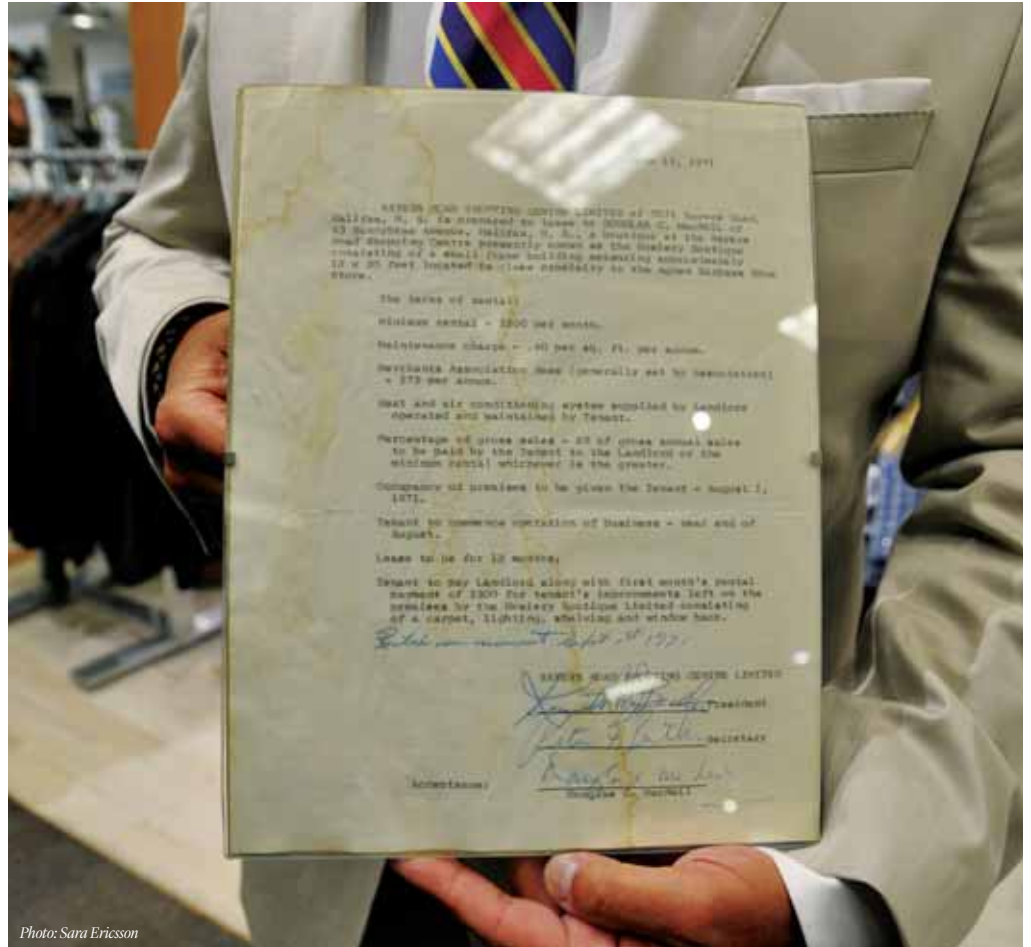 1971
BAYERS ROAD SHOPPING CENTRE LIMITED of Bayers Road,
Halifax, N. S. is prepared to lease to DOUGLAS C. MacNEIL of
Avenue, Halifax, N. S., a boutique at the Bayers
Road Shopping Centre presently known as the Hosiery Boutique
consisting of a small frame building measuring approximately
12 x feet located in close proximity to the Agnew Surpass Shoe
Store.
The terms of rental:
Minimum rental - per month.
Maintenance charge - .40 per sq. ft. per annum.
Merchants Association dues (generally set by Association)
- per annum.
Heat and air conditioning system supplied by Landlord
operated and maintained by Tenant.
Percentage of gross sales - of gross annual sales
to be paid by the Tenant to the Landlord or the
minimum rental whichever is the greater.
Occupancy of premises to be given the Tenant - August 1,
1971.
Tenant to commence operation of Business - end of
August.
Lease to be for 12 months.
Tenant to pay Landlord along with first month's rental
payment of for tenant's improvements left on the
premises by the Hosiery Boutique Limited consisting
of a carpet, lighting, shelving and window back.
Sept 1st 1971
BAYERS ROAD SHOPPING CENTRE LIMITED
President
Secretary
Acceptance:
Douglas C. MacNeil
Photo: Sara Ericsson